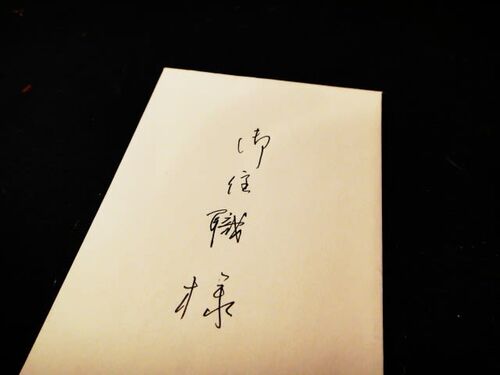 御住職様